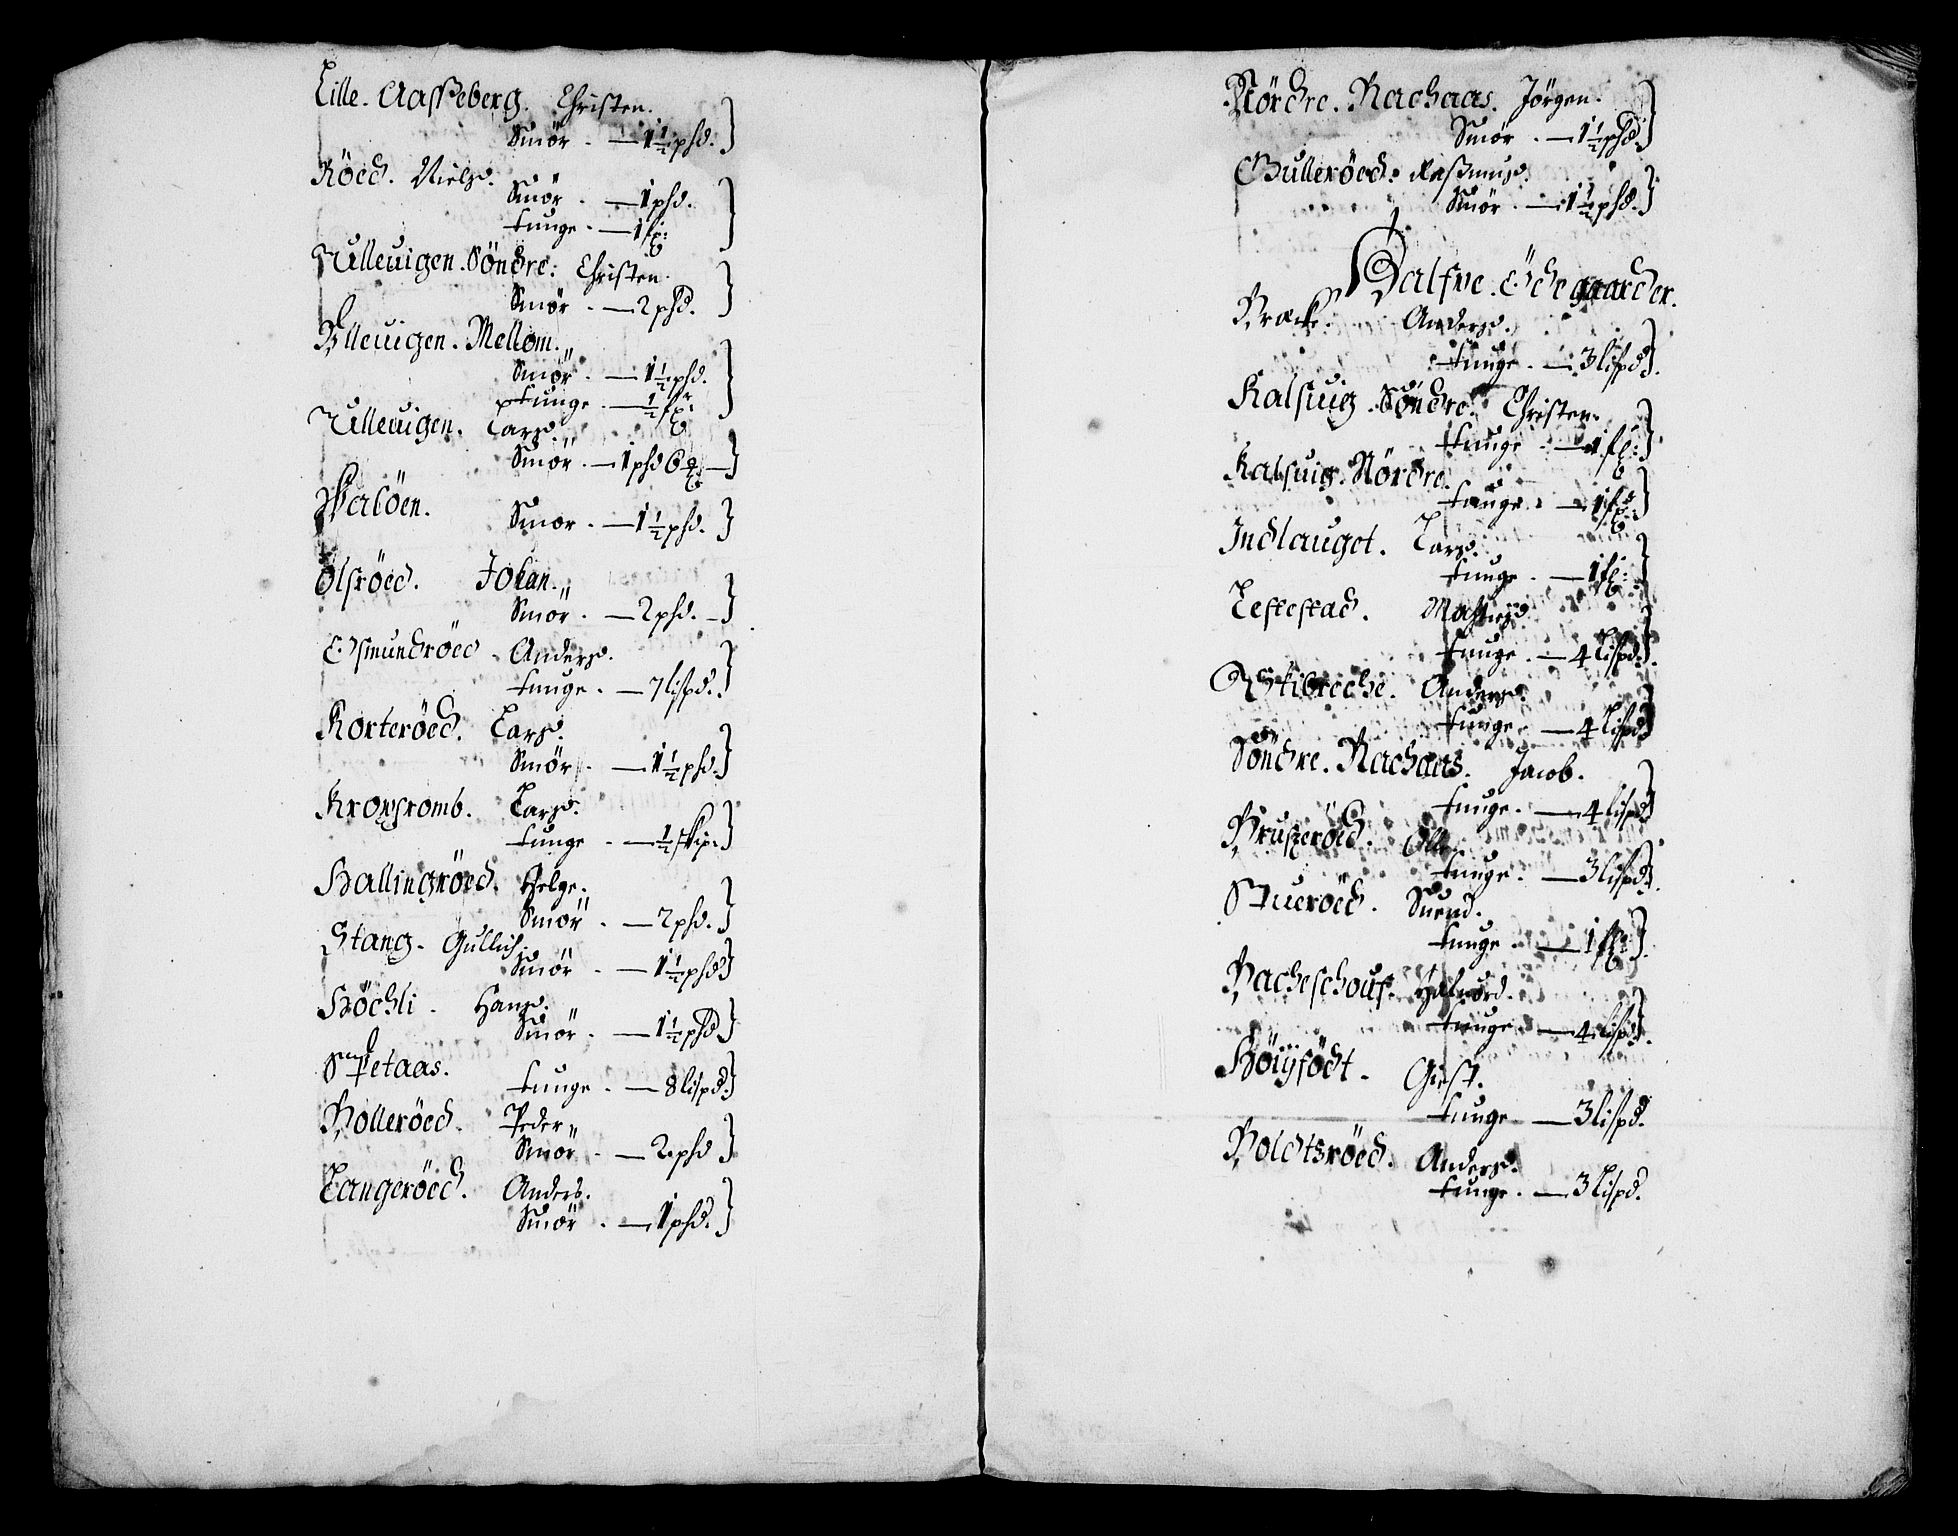 Lille. Aasseberg. Christen.
Smör. — 1½ phd.
Röed. Nielsd.
Smör. — 1 phd.
tunge. — 1 sp:
Ulleuigen. Söndre: Christen.
Smör. — 2 phd.
Ulleuigen. Mellom.
Smör. — 1½ phd.
tunge. — ½ sp:
Ulleuigen. Larsd.
Smör. — 1 phd 6
Walöen.
Smör. — 1½ phd.
Olsröed. Johan.
Smör. — 2 phd. —
Osmundröed. Andersd.
tunge. — 7 lispd.
Korteröed. Larsd.
Smör. — 1½ phd.
Larsd.
tunge. — ½ skip:
Hallingröed. Helge.
Smör. — 2 phd.
Stang. Gullich.
Smör. — 1½ phd
Höchli. Hansd.
Smör. — 1½ phd
Spetaas.
tunge. — 8 lispd.
Bolleröed. Peder
Smör. — 2 phd
Tangeröed. Anders.
Smör. — 1 phd.
Nördre. Rachaas. Jörgen.
Smör. — 1½ phd.
Gulleröed. Rassmusd.
Smör. — 1½ phd.
Halfve. Ödegaarder.
Bræcke. Andersd.
tunge. — 3 lispd.
Kalsuig. Söndre. Christen.
tunge. — 1 sp:
Kalsuig. Nördre.
tunge. — 1 sp:
Indlauget. Larsd.
tunge. — 1 sp:
Leffestad. Mathiesd
tunge. — 4 lispd.
Andersd.
tunge. — 4 lispd
Söndre. Rachaas. Jacob.
tunge. — 4 lispd
Brusseröed. Olle.
tunge. — 3 lispd.
Stueröed. Suend.
tunge. — 1 sp:
Bacheschouf. Haluord.
tunge. — 4 lispd.
Höiifödt. Giest.
tunge. — 3 lispd.
Boldtsröed. Andersd.
tunge. — 3 lispd.